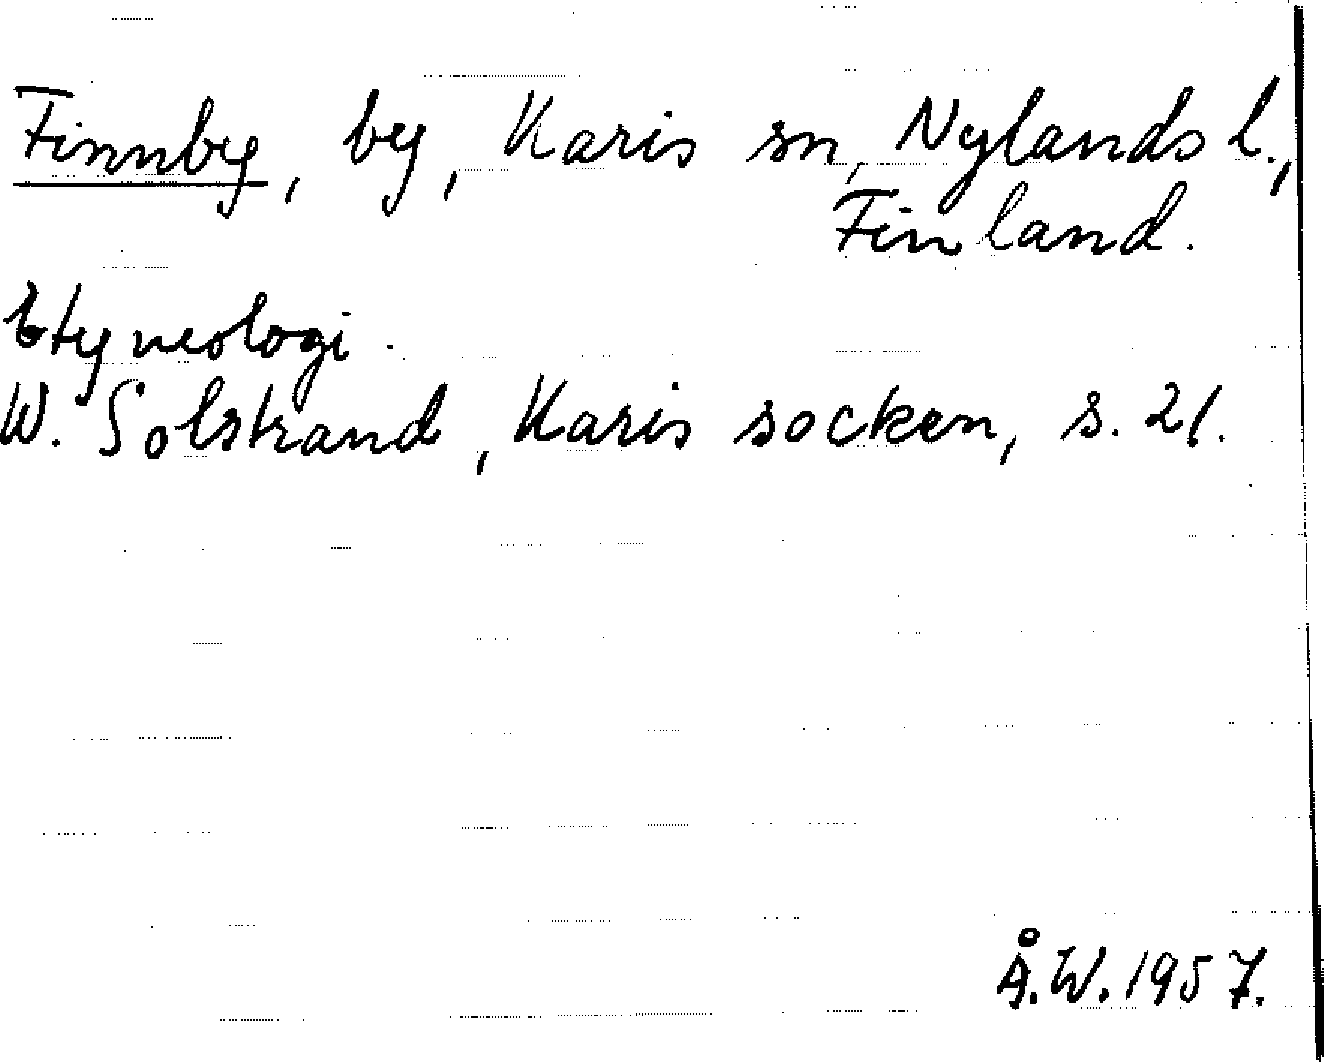 Finnby, by, Karis sn, Nylands l.,
Finland.
Etymologi.
W. Solstrand, Karis socken, s. 21.
Å.W. 1957.